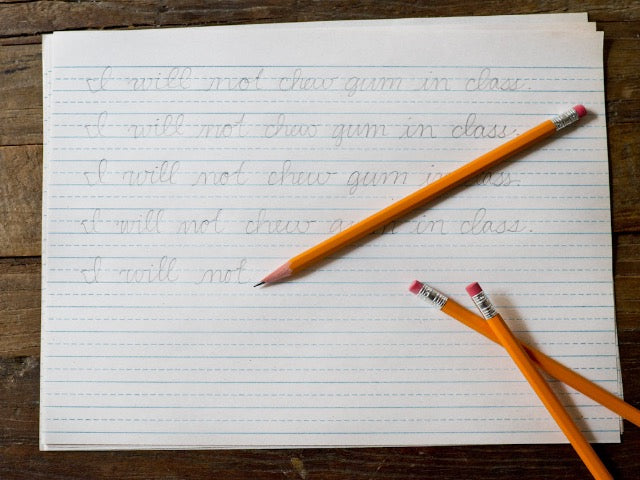 I will not chew gum in class.
I will not chew gum in class.
I will not chew gum in class.
I will not chew gum in class.
I will not